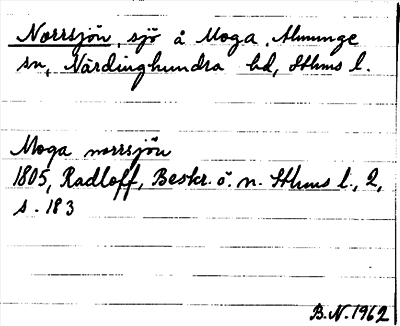 Norrsjön, sjö å Moga, Almunge
sn, Närdinghundra hd, Sthms l.
Moga norrsjön
1805, Radloff, Beskr. ö. n. Sthms l., 2,
s. 183
B.N. 1962